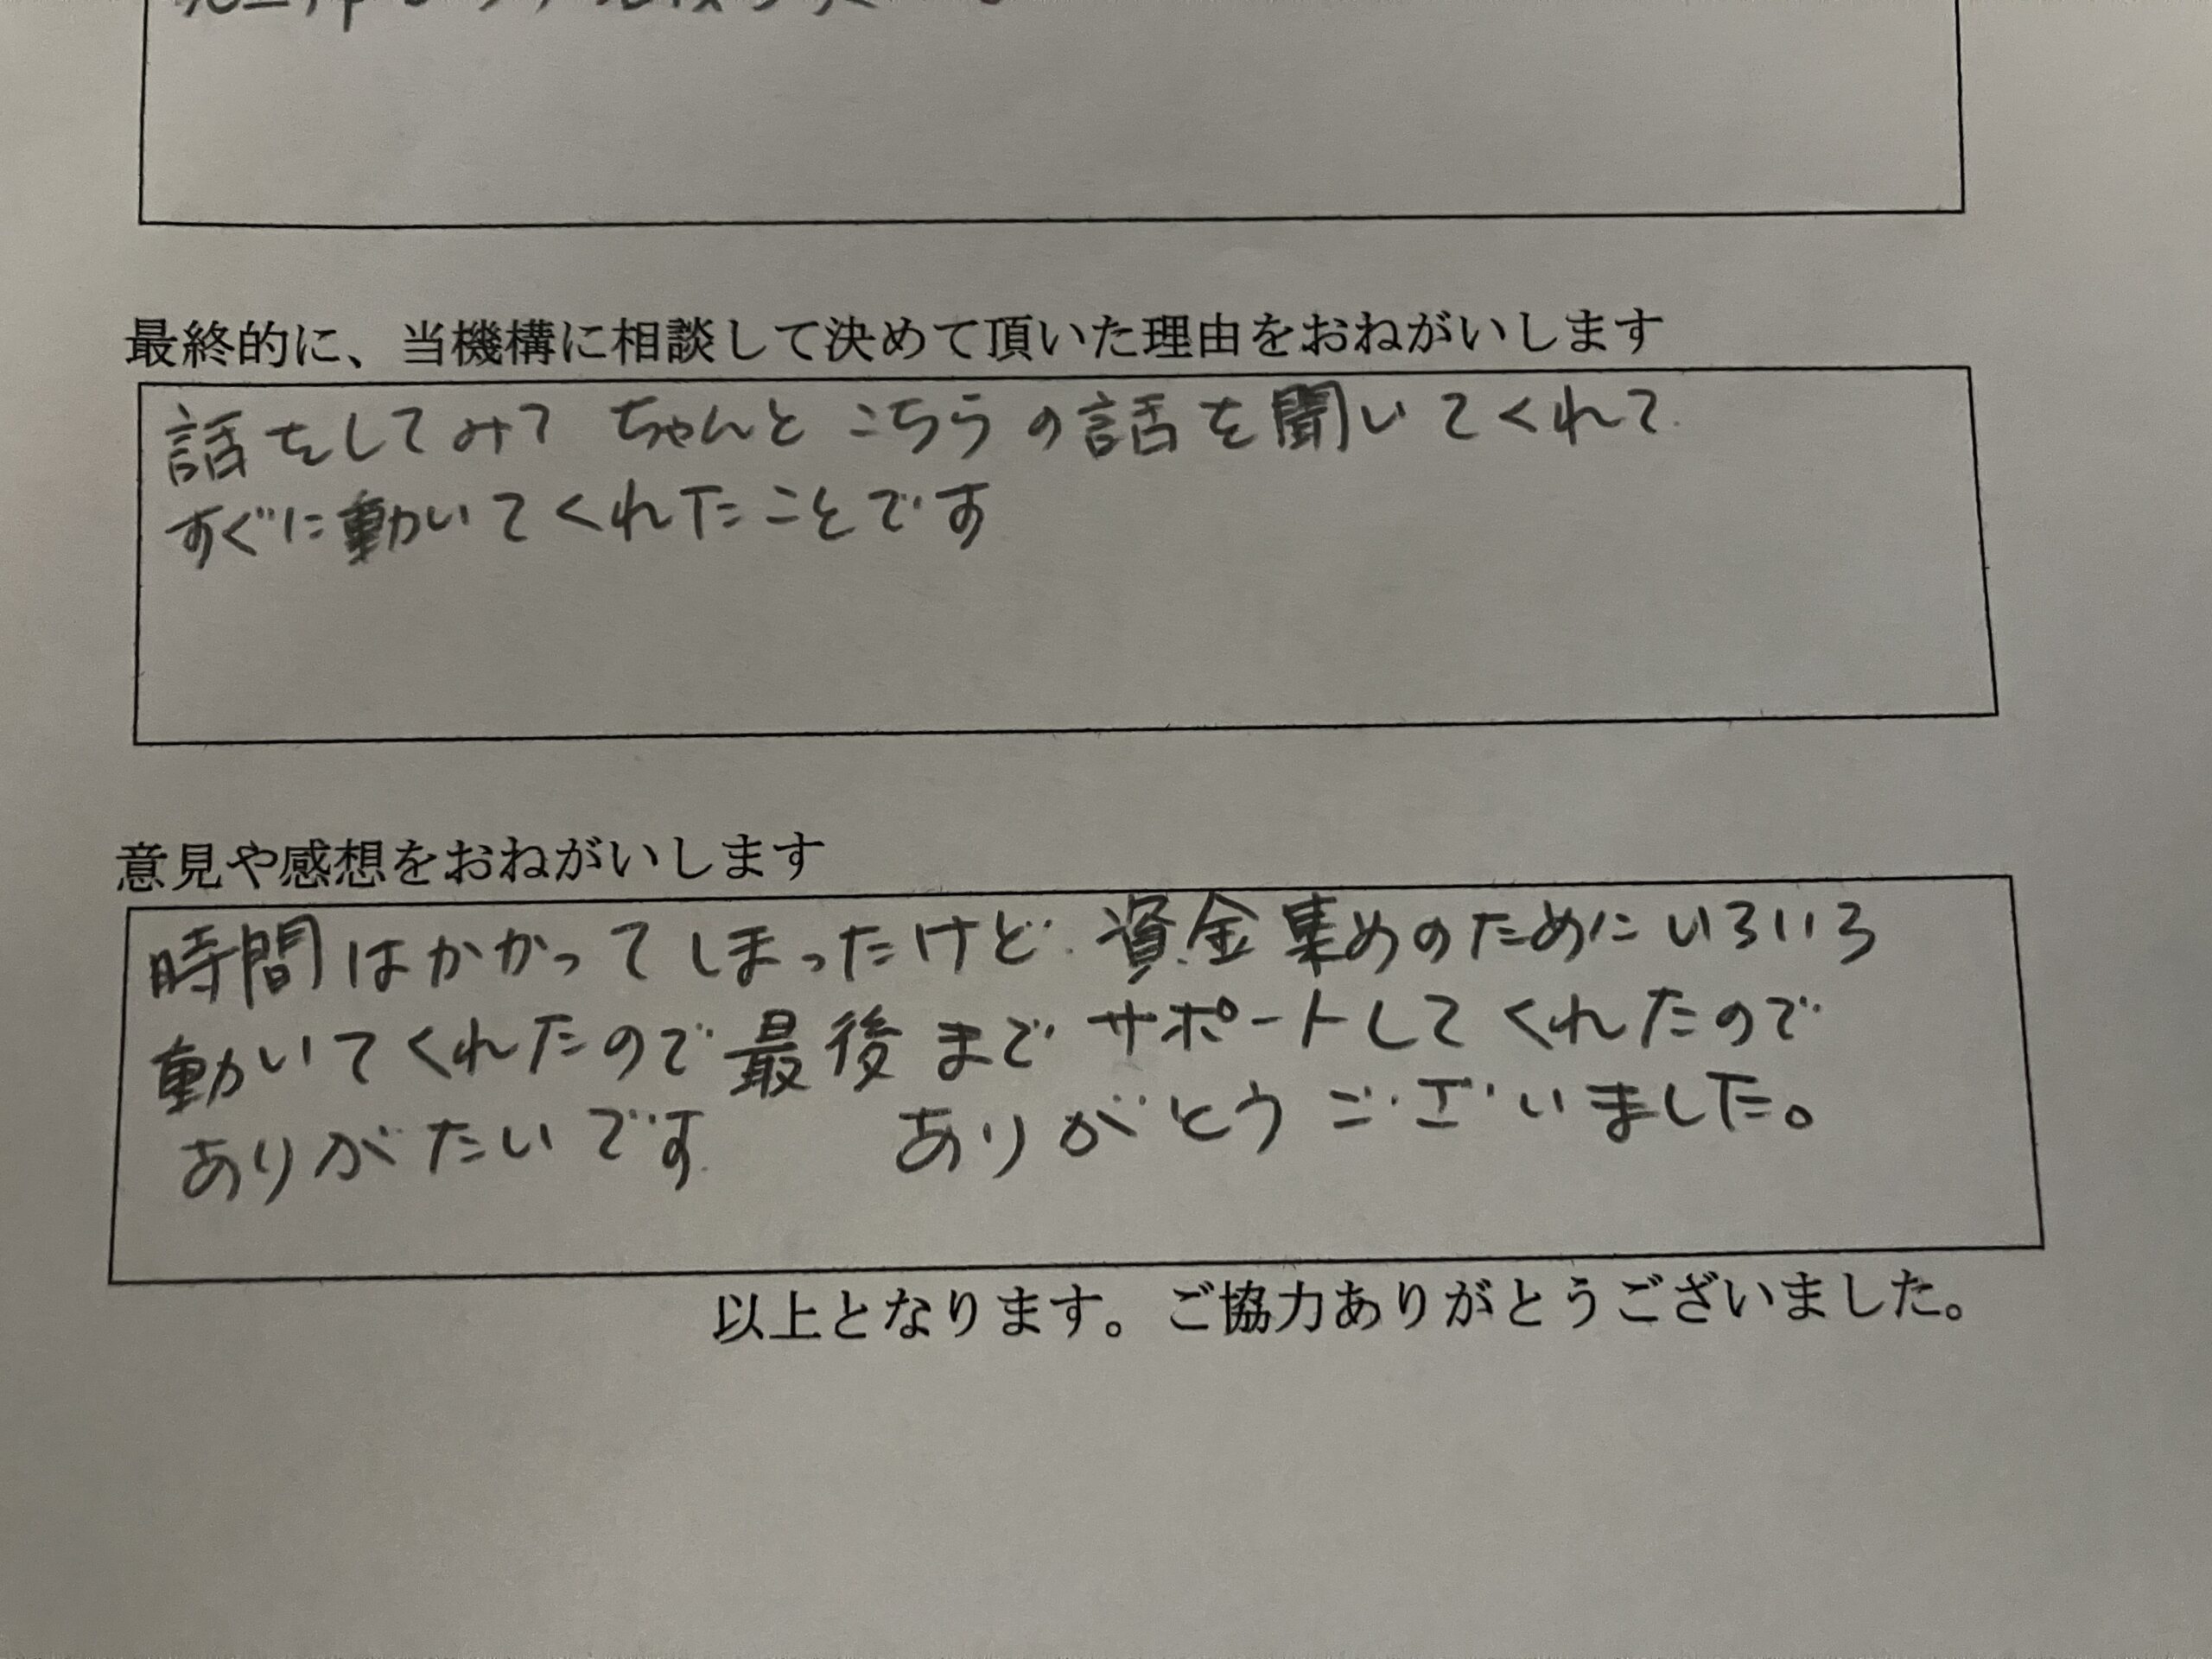 最終的に、当機構に相談して決めて頂いた理由をおねがいします
話をしてみて ちゃんと こちらの話を聞いてくれて
すぐに動いてくれたことです
意見や感想をおねがいします
時間はかかってしまったけど 資金集めのためにいろいろ
動いてくれたので最後までサポートしてくれたので
ありがたいです ありがとうございました。
以上となります。ご協力ありがとうございました。